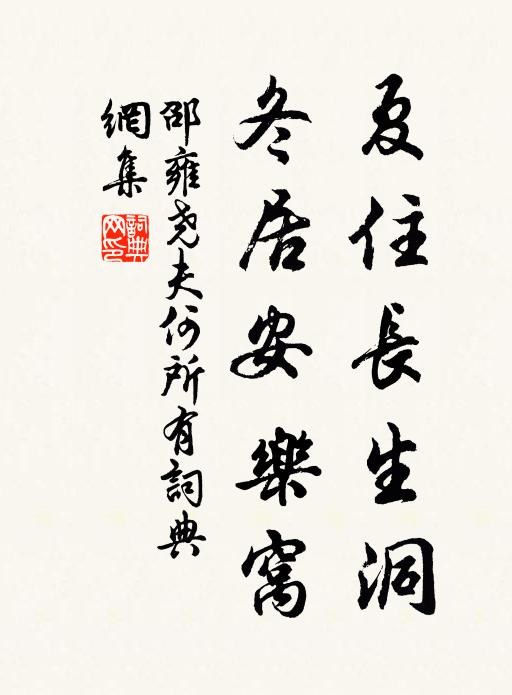 夏住長生洞
冬居安樂窩
邵雍堯夫何所有詞典
網集
詞典網印